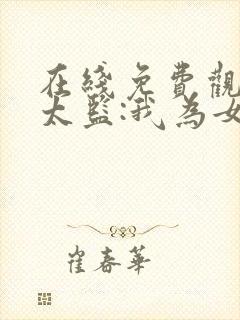 在綫免費觀
太監:我為女
崔春華